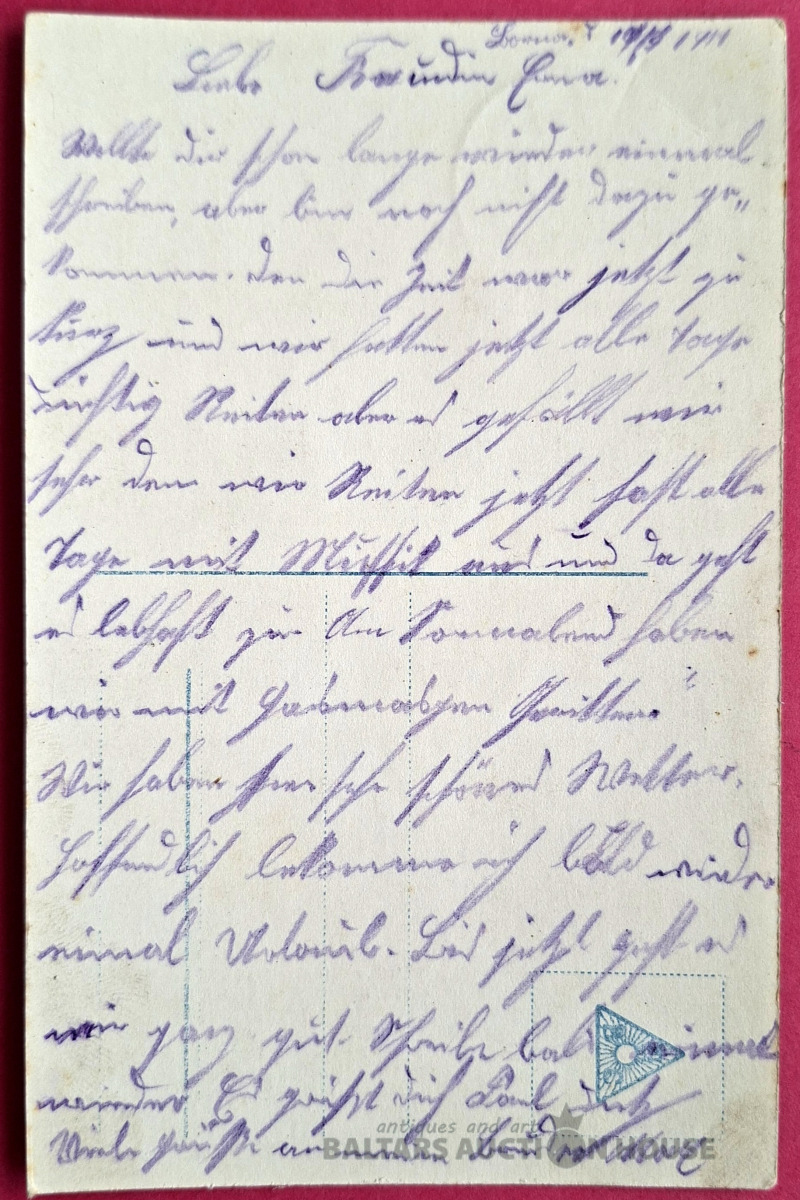 Borna, d
Liebe Freundin Erna.
Wollte dir schon lange wieder einmal
schreiben, aber bin noch nicht dazu ge„
kommen. den die Zeit war jetzt zu
kurz und wir hatten jetzt alle Tage
düchtig Reiten aber es gefällt mir
sehr den wir Reiten jetzt fast alle
Tage mit Mussik aus und da geht
es lebhaft zu Am Sonnabend haben
wir mit Gasmasken Geritten
Wir haben hier sehr schönes Wetter.
Hoffendlich bekomme ich bald wieder
eimal Urlaub. Bis jetzt geht es
mir ganz gut. Schreibe bald einmal
wieder Es grüßt dich Paul
Viele Grüße an
antiques and art
BALTARS AUCTION HOUSE